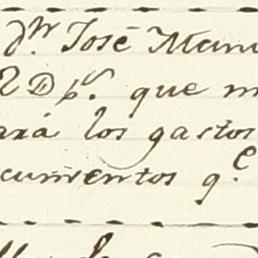 dn José Manu
que m
ará los gastos
cumentos q.e